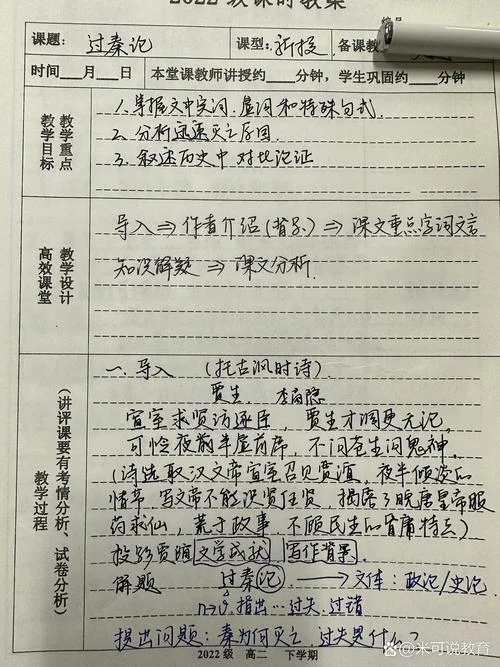 2022级课时教案
课题: 过秦论 课型: 新授 备课教
时间___月___日 本堂课教师讲授约___分钟，学生巩固约___分钟
教学目标 教学重点
1. 掌握文中实词、虚词和特殊句式.
2. 分析迅速灭亡原因
3. 叙述历史中对比论证
高效课堂 教学设计
导入⇒作者介绍(背景)⇒课文重点字词文言
知识解疑⇒课文分析.
教学过程
（讲评课要有考情分析、试卷分析）
一. 导入 (托古讽时诗).
贾生. 李商隐
宣室求贤访逐臣, 贾生才调更无论.
可怜夜前半虚前席, 不问苍生问鬼神.
(诗选取汉文帝宣室召见贾谊, 夜半倾谈的
情节, 写文帝不能识贤任贤, 揭露了晚唐皇帝服
药求仙, 荒于政事, 不顾民生的昏庸特点)
投影贾谊文学成就 写作背景.
解题 过秦论 → 文体: 政论/史论
指出…过失, 过错
提出问题: 秦为何灭亡, 过失是什么?
2022级 高二 下学期
@米可说教育